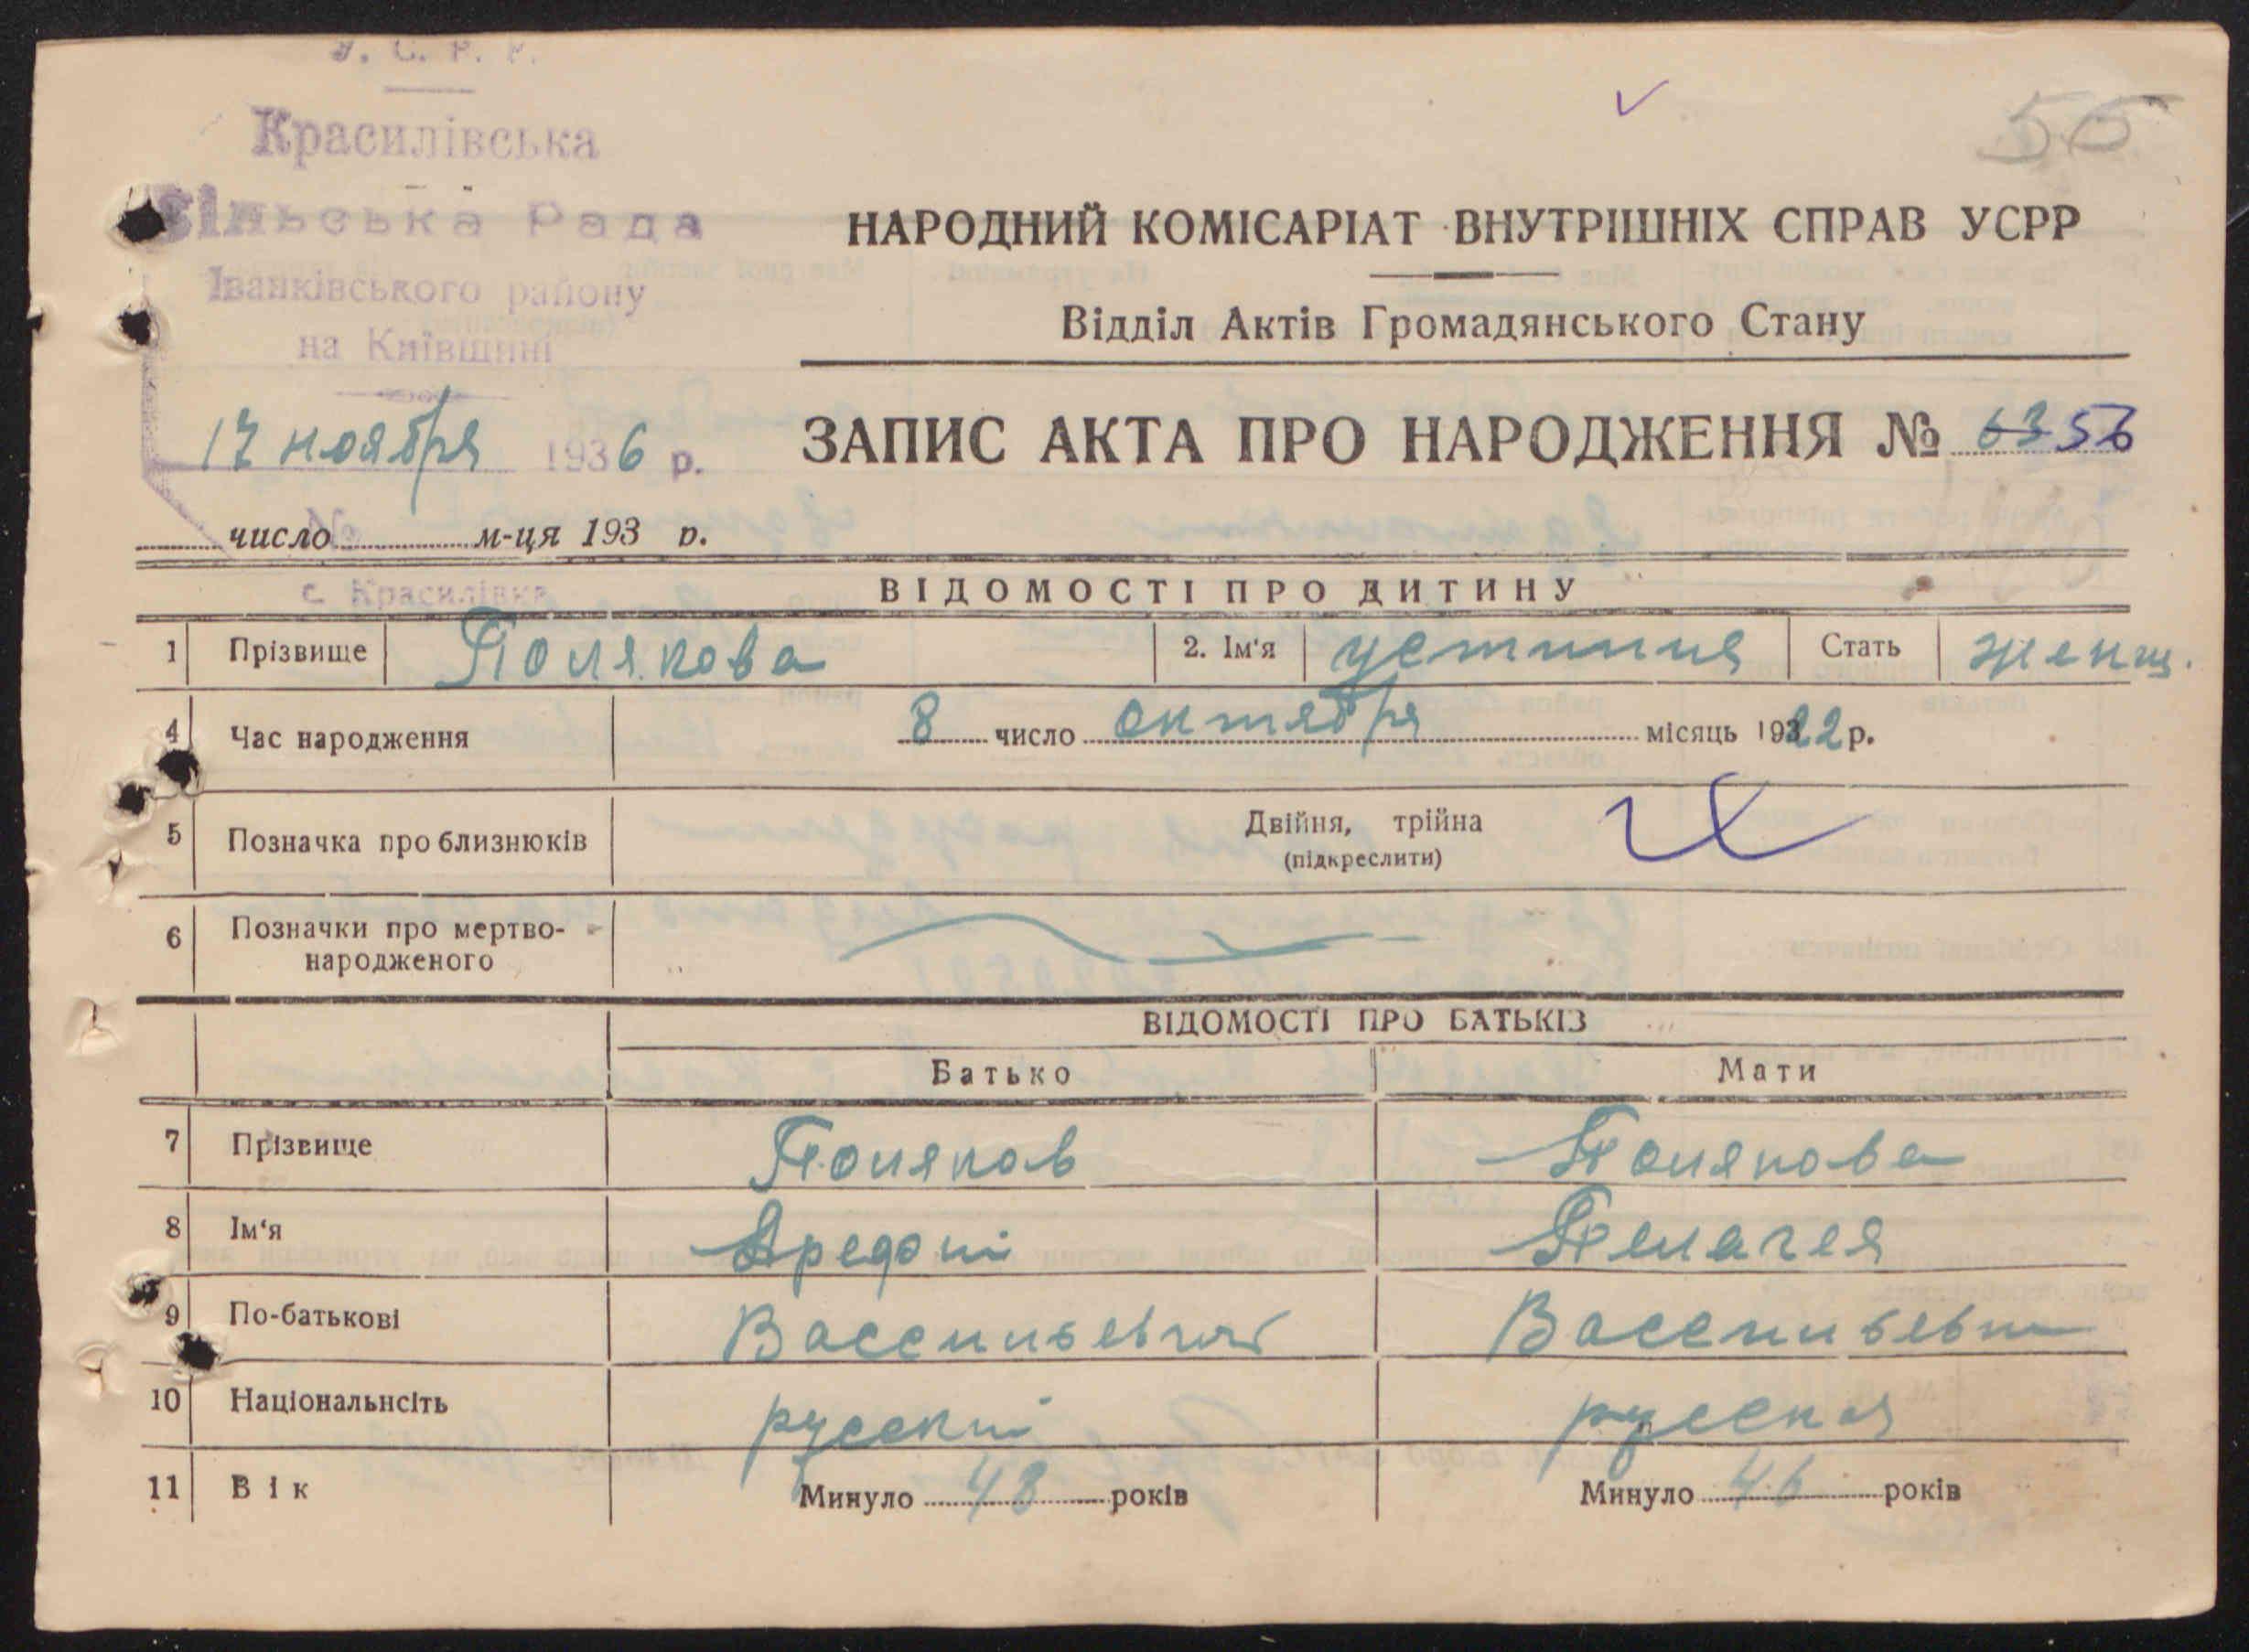 У. С. Р. Р.
Красилівська
Сільська Рада
Іванківського району
на Київщині
17 ноября 1936 р.
№
с. Красилівка
55
НАРОДНИЙ КОМІСАРІАТ ВНУТРІШНІХ СПРАВ УСРР
Відділ Актів Громадянського Стану
ЗАПИС АКТА ПРО НАРОДЖЕННЯ № 63 56
число м-ця 193 р.
ВІДОМОСТІ ПРО ДИТИНУ
1 Прізвище Полякова 2. Ім'я Устиния Стать женщ.
4 Час народження 8 число октября місяць 1922 р.
5 Позначка про близнюків Двійня, трійна
(підкреслити)
6 Позначки про мертво-
народженого
ВІДОМОСТІ ПРО БАТЬКІВ
Батько Мати
7 Прізвище Поляков Полякова
8 Ім'я Пелагея
9 По-батькові Вассильевич Вассильевна
10 Національнсіть русский русская
11 Вік Минуло 48 років Минуло 46 років